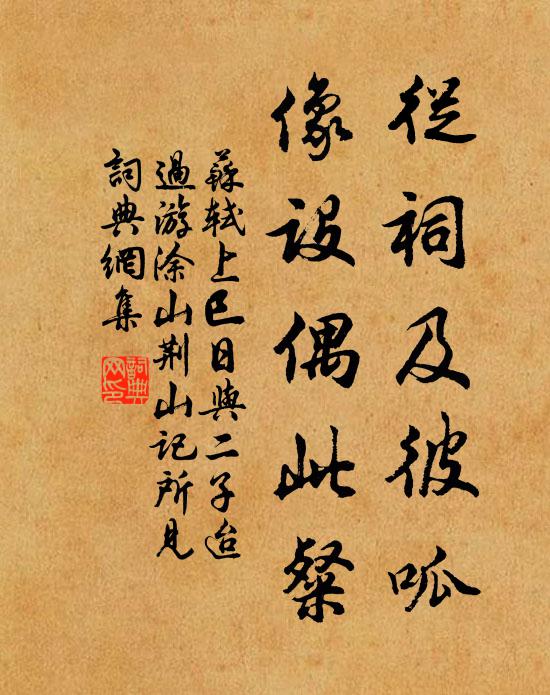 從祠及彼呱
像設偶此粲
蘇軾上巳日與二子迨
過游涂山荆山記所見
詞典網集
詞典網印